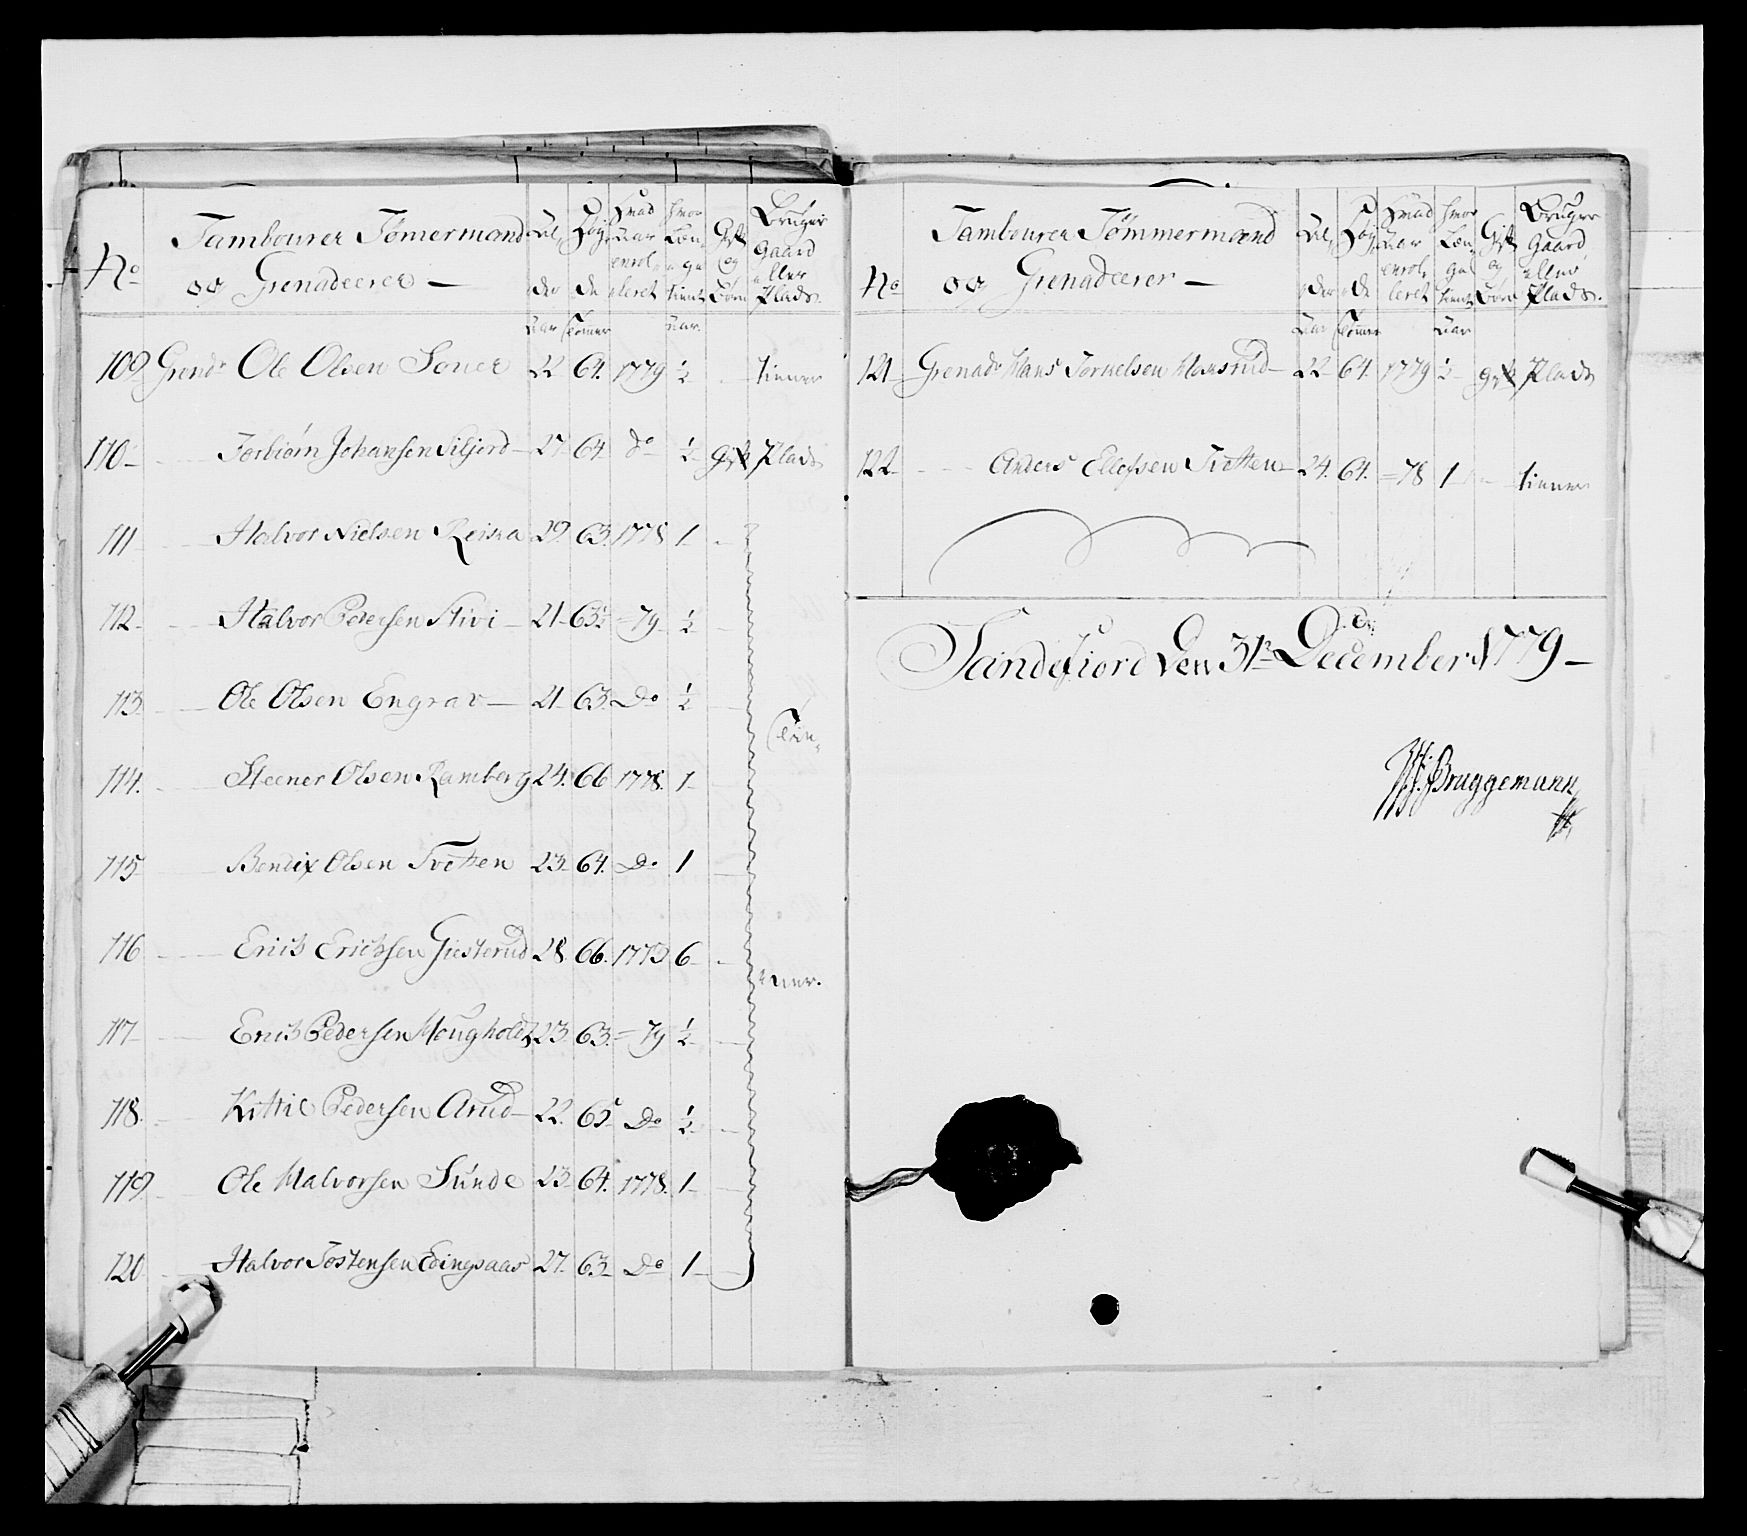 No Tambourer Tömermænd og Grenadeerer — Al, der Aar Høy, de Tomer Hvad Aar enrol, leret Hvor Læn, ge tient Aar. Gift og Børn Bruger Gaard eller Plads.
109 Grend.r Ole Olsen Soner 22 64. 1779 ½ tienner
110 Torbiörn Johansen Siljord 27 64 do ½ gift Plads
111 Halvor Nielsen Reisra 29. 63. 1778 1
112 Halvor Pedersen Stivi 21 63½ = 79 ½
113 Ole Olsen Engrav 21 63 Do ½
Tien,
114. Steener Olsen Ramberg 24. 66 1778. 1
115 Bendix Olsen Tvetten 23. 64. Do 1
116 Erich Erichsen Giesterud 28 66. 1773 6
ner.
117 Erich Pedersen Hougholdt 23 63. = 79 ½
118. Kittil Pedersen Arud 22. 65 Do ½
119 Ole Halvorsen Sünde 23 64. 1778. 1
120 Halvor Tostensen Edingsaas 27 63 Do 1
No Tambourer Tömmermænd og Grenadeerer — Al, der Aar Høy, de Tomer Hvad Aar enrol, leret Hvor Læn, ge tient Aar Gift og Børn Bruger Gaard eller Plads.
121 Grenadr Hans Torkelsen 22 64. 1779 ½ gift Plads
122 Anders Ellefsen Tvetten 24. 64. = 78 1 tienner
Sandefiord den 31te December 1779 —
Bruggemann